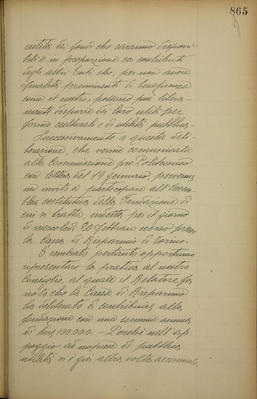 865
entità dei fondi che saranno disponi-
bili e in proporzione coi contributi
degli altri Enti che, per non avere
finalità preminenti di beneficenza
come il nostro, possono più libera-
mente disporre dei loro utili per
forme culturali e di utilità pubblica.-
Successivamente a questa deli-
berazione, che venne comunicata
alla Commissione pro Politecnico
con lettera del 19 Gennaio, pervenne
un invito a partecipare all'Assem-
blea costitutiva della Fondazione di
cui si tratta, indetta per il giorno
di mercoledì 20 Febbraio presso
la Cassa di Risparmio di Torino.
È sembrato pertanto opportuno
ripresentare la pratica al nostro
Consiglio, al quale il Relatore fa
noto che la Cassa di Risparmio
ha deliberato di contribuire alla
fondazione con una somma annua
di lire 100.000.- Poiché nell'ap-
poggio ad imprese di pubblica
utilità si è già altra volta